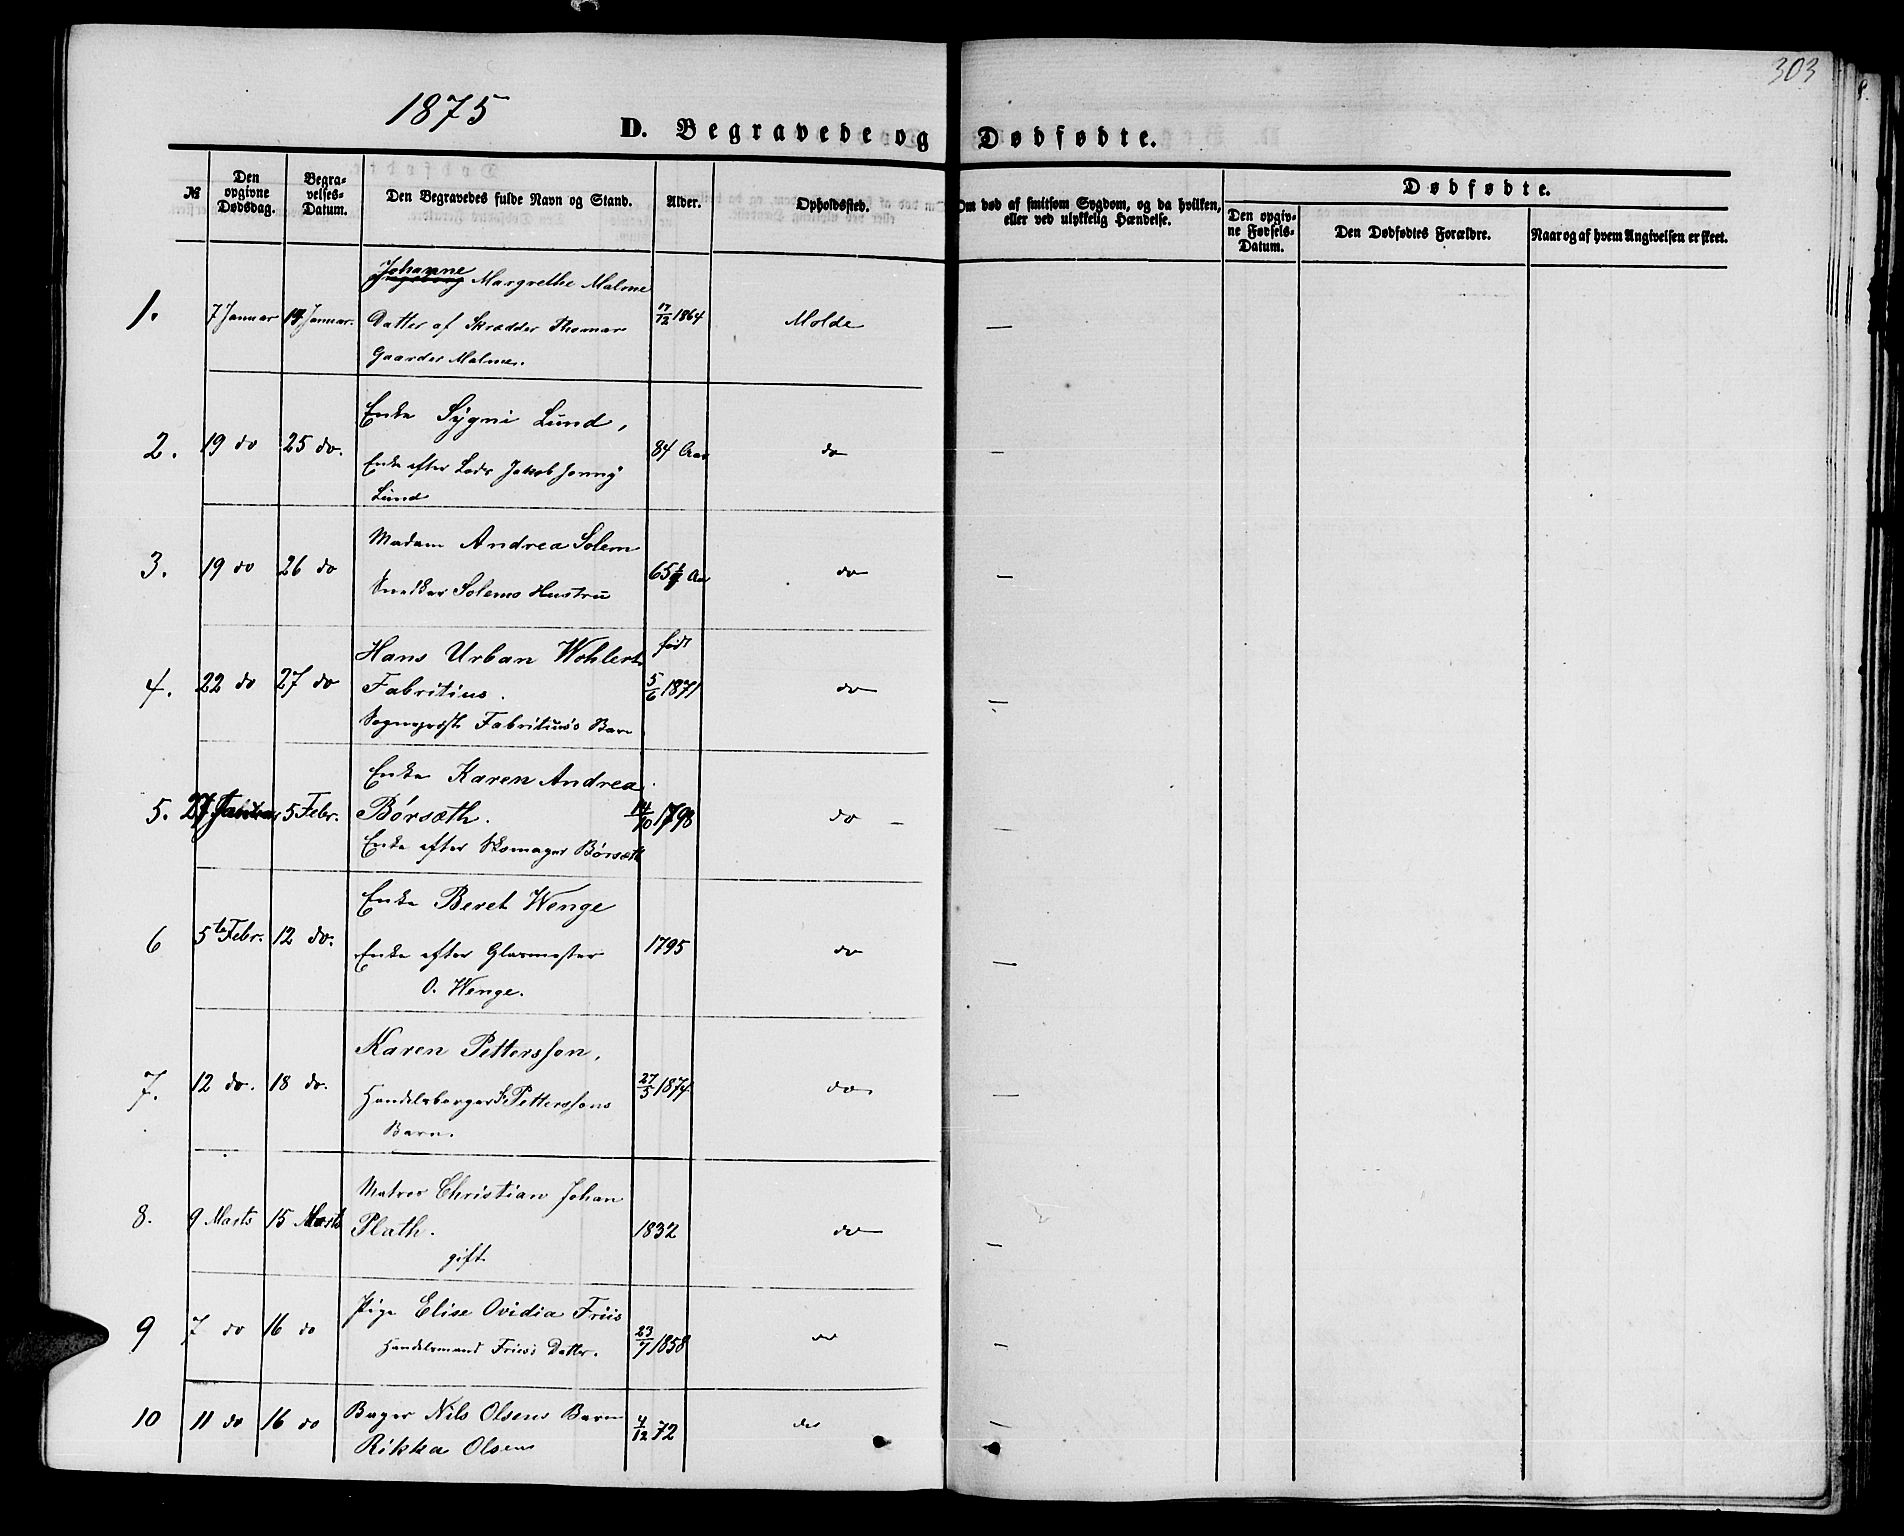 303
1875
D. Begravede og Dødfødte.
№
Den opgivne Dødsdag.
Begravelses-Datum.
Den Begravedes fulde Navn og Stand.
Alder.
Opholdssted.
Om død af smitsom Sygdom, og da hvilken, eller ved ulykkelig Hændelse.
Dødfødte.
Den opgivne Førsels-Datum.
Den Dødfødtes Forældre.
Naar og af hvem Angivelsen er skeet.
1. 7 Januar 14 Januar. Johanne Margrethe Malme 17/12 1864 Molde —
Datter af Skrædder Thomas
Gaarder Malme.
2. 19 do 25 do. Enke Sygni Lund, 84 Aar do —
Enke efter Lods Jakob
Lund
3. 19 do 26 do Madam Andrea Solem 65 do —
Snedker Solems Hustru
4. 22 do 27 do Hans Urban Wohlert født 5/6 1871 do —
Fabritius.
Sognepræst Fabritius's Barn
5. 27 Januar 5 Febr. Enke Karen Andrea 14/10 1798 do —
Børsæth.
Enke efter Skomager Børsæth
6 5te Febr. 12 do. Enke Beret Wenge 1795 do —
Enke efter Glarmester
O. Wenge.
7. 12 do. 18 do. Karen Pettersson, 27/5 1874 do —
Handelsborger Petterssons
Barn.
8. 9 Marts 15 Marts Matros Christian Johan 1832 do —
Plath.
gift
9 7 do 16 do Pige Elise Ovidia Friis 23/7 1858 do —
Handelsmand Friis's Datter.
10 11 do 16 do Bager Nils Olsens Barn 4/12 72 do —
Rikka Olsen